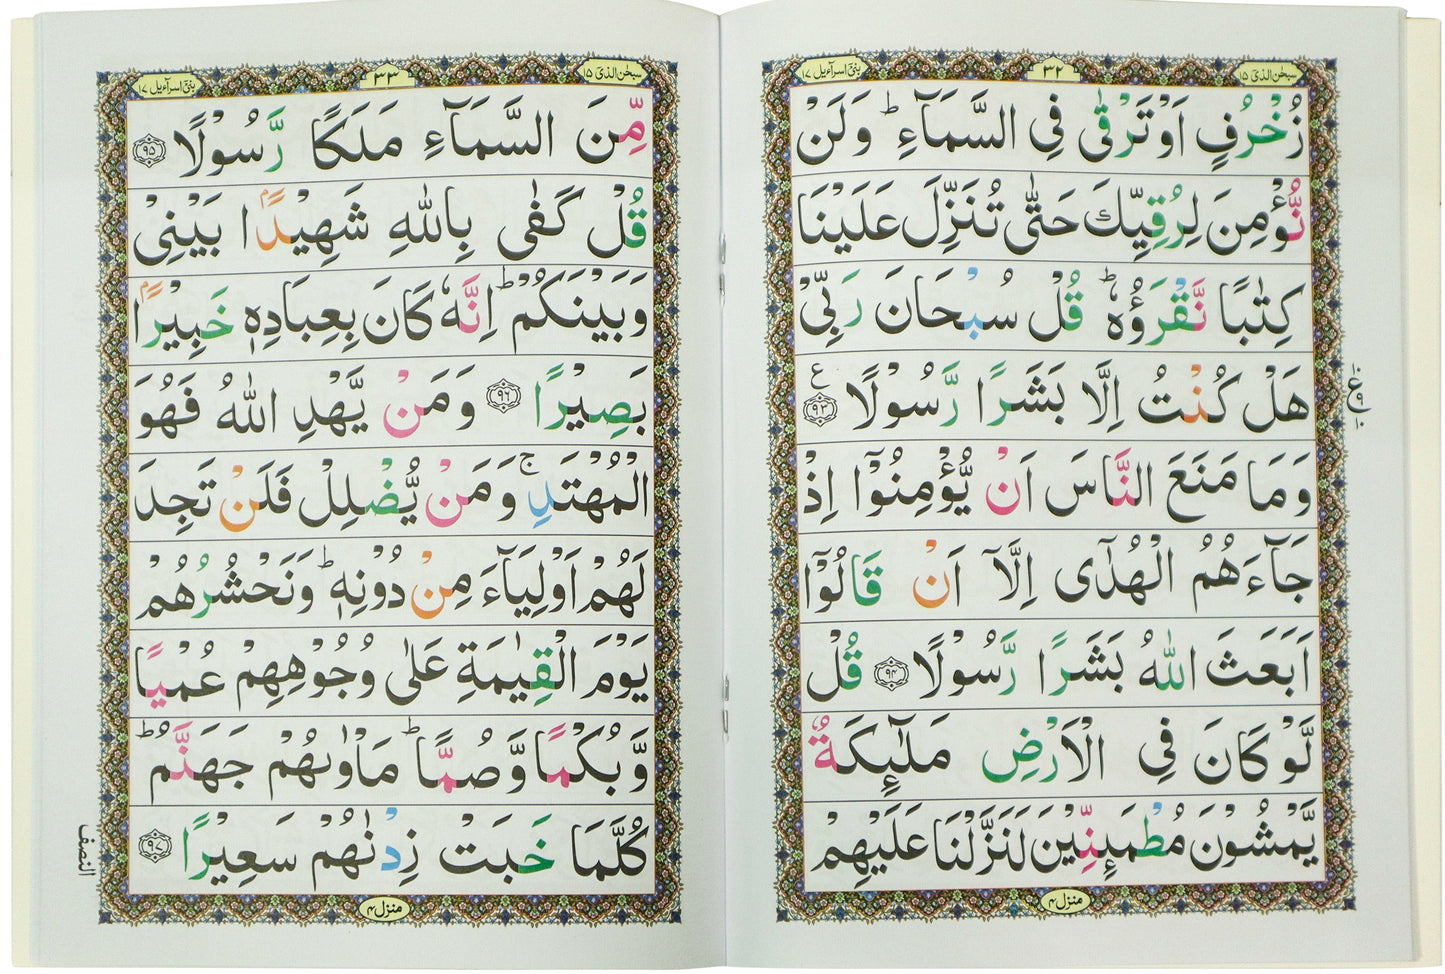 سبحٰن الذیۤ ۱۵
۳۲
بنیۤ اسرآءیل ۱۷
زُخْرُفٍ اَوْ تَرْقٰى فِى السَّمَآءِ ؕ وَلَنْ
نُّؤْمِنَ لِرُقِيِّكَ حَتّٰى تُنَزِّلَ عَلَيْنَا
كِتٰبًا نَّقْرَؤُهٗ ؕ قُلْ سُبْحَانَ رَبِّىْ
هَلْ كُنْتُ اِلَّا بَشَرًا رَّسُوْلًا ۹۳ ع
وَمَا مَنَعَ النَّاسَ اَنْ يُّؤْمِنُوْۤا اِذْ
جَآءَهُمُ الْهُدٰٓى اِلَّاۤ اَنْ قَالُوْۤا
اَبَعَثَ اللّٰهُ بَشَرًا رَّسُوْلًا ۹۴ قُلْ
لَّوْ كَانَ فِى الْاَرْضِ مَلٰٓٮِٕكَةٌ
يَّمْشُوْنَ مُطْمَٮِٕنِّيْنَ لَنَزَّلْنَا عَلَيْهِمْ
منزل ۴
۱۰
ع ۹
۱۰
سبحٰن الذیۤ ۱۵
۳۳
بنیۤ اسرآءیل ۱۷
مِّنَ السَّمَآءِ مَلَكًا رَّسُوْلًا ۹۵
قُلْ كَفٰى بِاللّٰهِ شَهِيْدًۢا بَيْنِىْ
وَبَيْنَكُمْ ؕ اِنَّهٗ كَانَ بِعِبَادِهٖ خَبِيْرًۢا
بَصِيْرًا ۹۶ وَمَنْ يَّهْدِ اللّٰهُ فَهُوَ
الْمُهْتَدِ ۚ وَمَنْ يُّضْلِلْ فَلَنْ تَجِدَ
لَهُمْ اَوْلِيَآءَ مِنْ دُوْنِهٖ ؕ وَنَحْشُرُهُمْ
يَوْمَ الْقِيٰمَةِ عَلٰى وُجُوْهِهِمْ عُمْيًا
وَّبُكْمًا وَّصُمًّا ؕ مَاْوٰٮهُمْ جَهَنَّمُ ؕ
كُلَّمَا خَبَتْ زِدْنٰهُمْ سَعِيْرًا ۹۷
منزل ۴
النصف